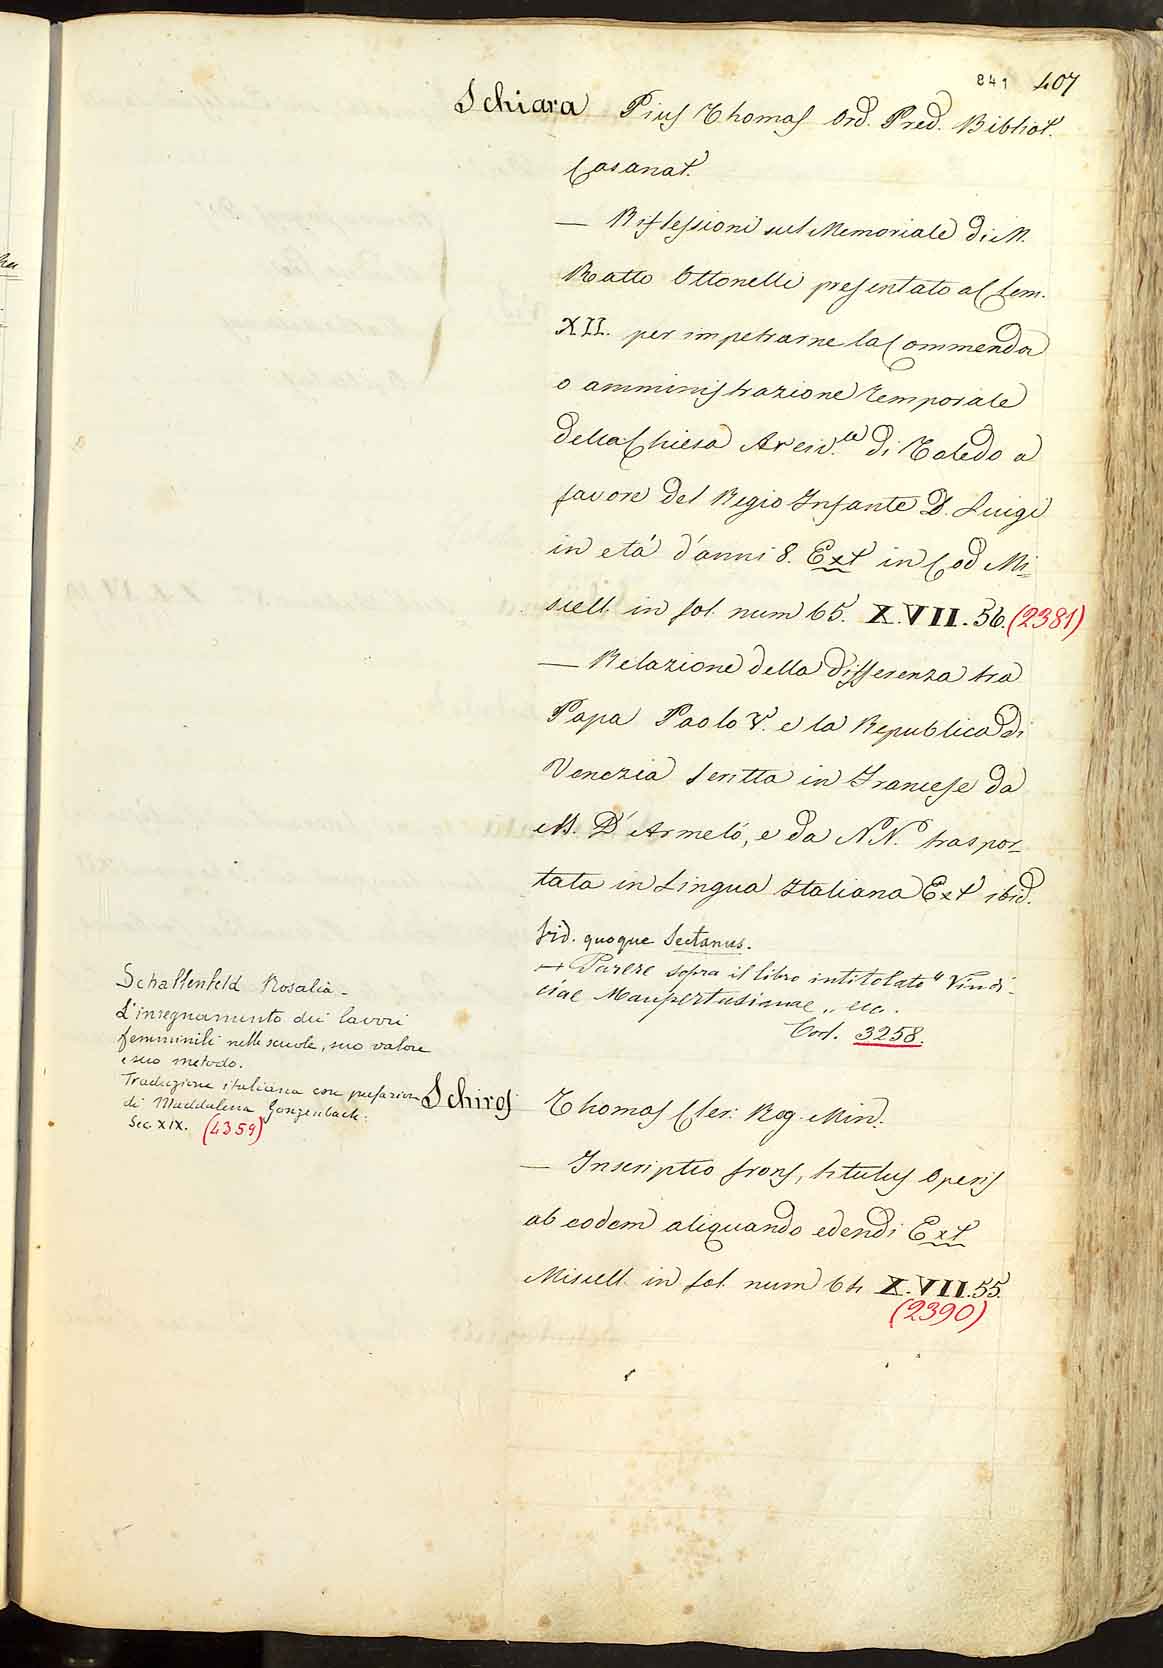 841 407
Schiara Pius Thomas Ord. Pred. Bibliot.
Casanat.
— Riflessioni sul Memoriale di M.
Ratto Ottonelli presentato a Clem.
XII. per impetrarne la Commenda
o amministrazione temporale
della Chiesa Arciv.le di Toledo a
favore del Regio Infante D. Luigi
in età d'anni 8. Ext in Cod Mi=
scell. in fol. num 65. X.VII.56. (2381)
— Relazione della differenza tra
Papa Paolo V. e la Republica di
Venezia scritta in Francese da
M. D'Armelò, e da N.N. traspor-
tata in Lingua Italiana Ext ibid.
Vid. quoque Sectanus.
— Parere sopra il libro intitolato "Vindi-
ciae Maupertusianae „ ecc.
Cod. 3258.
Schallenfeld Rosalia -
L'insegnamento dei lavori
femminili nelle scuole, suo valore
e suo metodo.
Traduzione italiana con prefazione
di Maddalena Gonzenbach.
Sec. XIX. (4359)
Schiros Thomas Cler. Reg. Min.
— Inscriptio frons, titulus Operis
ab eodem aliquando edendi Ext
Miscell. in fol. num 64 X.VII.55.
(2390)